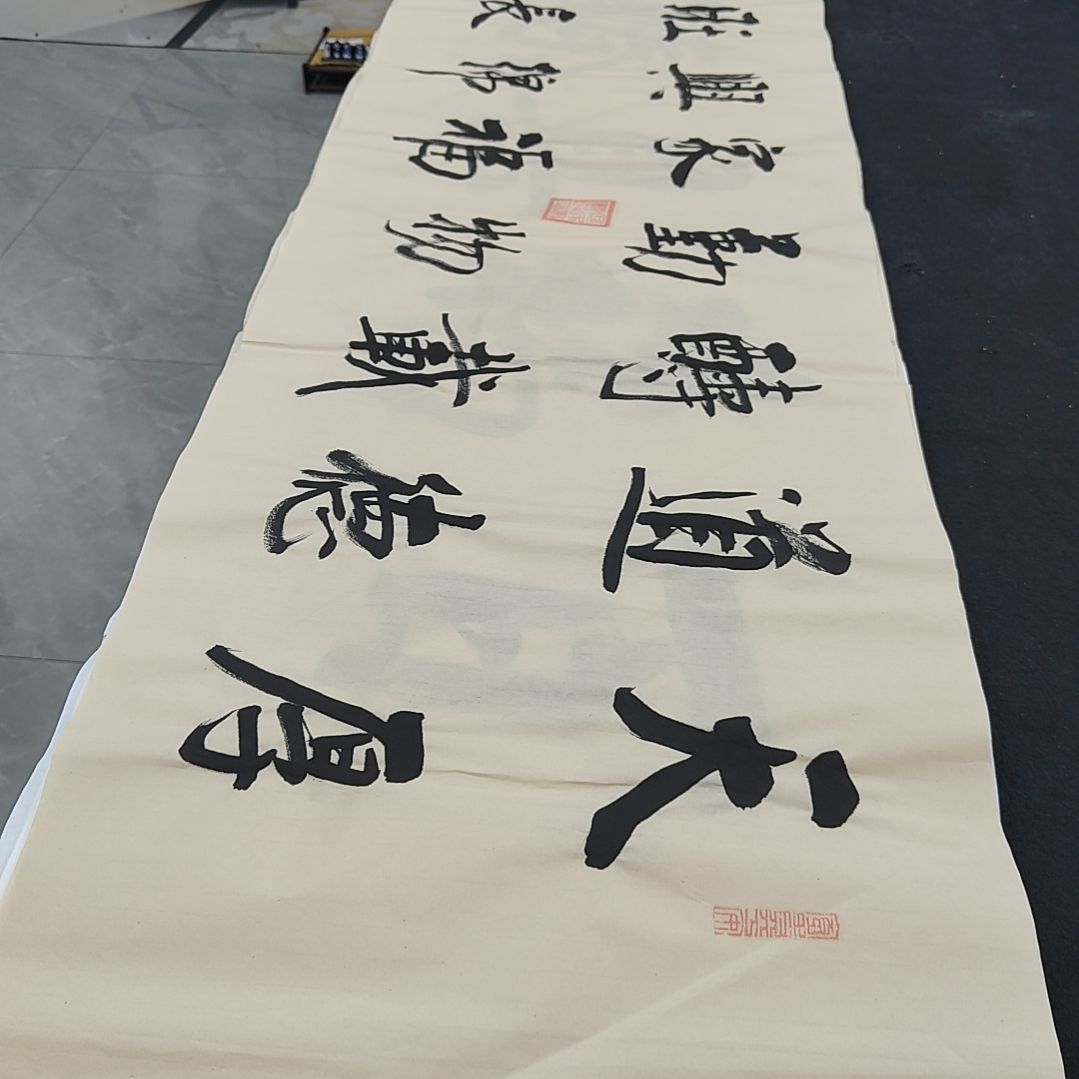 天道醻勤家興旺
厚德載物福綿長